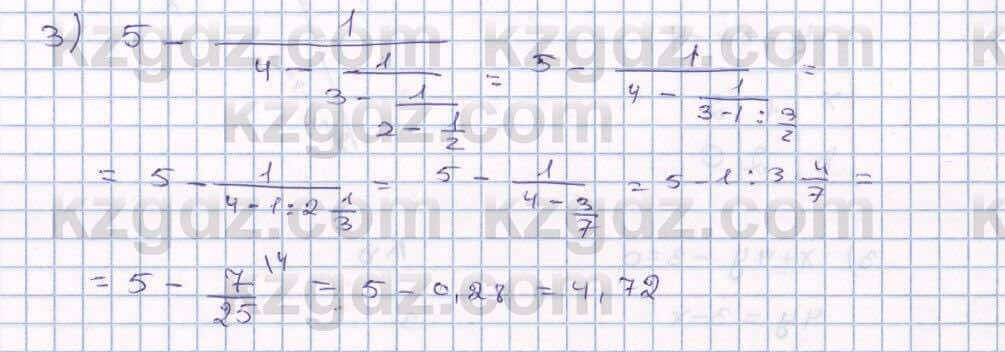 3) 5 - 1/(4 - 1/(3 - 1/(2 - 1/2))) = 5 - 1/(4 - 1/(3 - 1 : 3/2)) =
= 5 - 1/(4 - 1 : 2 1/3) = 5 - 1/(4 - 3/7) = 5 - 1 : 3 4/7 =
= 5 - 7/25 \4 = 5 - 0,28 = 4,72
kzgdz.com kzgdz.com
kzgdz.com
kzgdz.com kzgdz.com
kzgdz.com